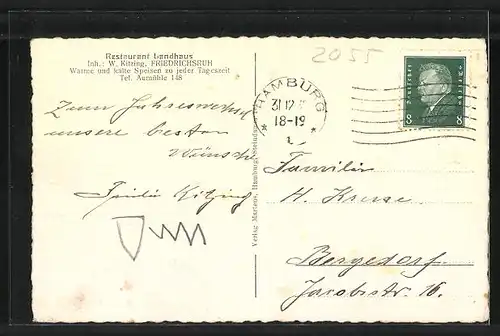 Restaurant Landhaus
Inh.: W. Kitzing, FRIEDRICHSRUH
Warme und kalte Speisen zu jeder Tageszeit
Tel. Aumühle 148
2055
HAMBURG
31.12
18-19
* 1 *
8 8
Zum Jahreswechsel
unsere besten
Wünsche
Familie Kitzing
Verlag: Martens, Hamburg
Familie
H. Kruse
Bergedorf
Jacobistr. 16.